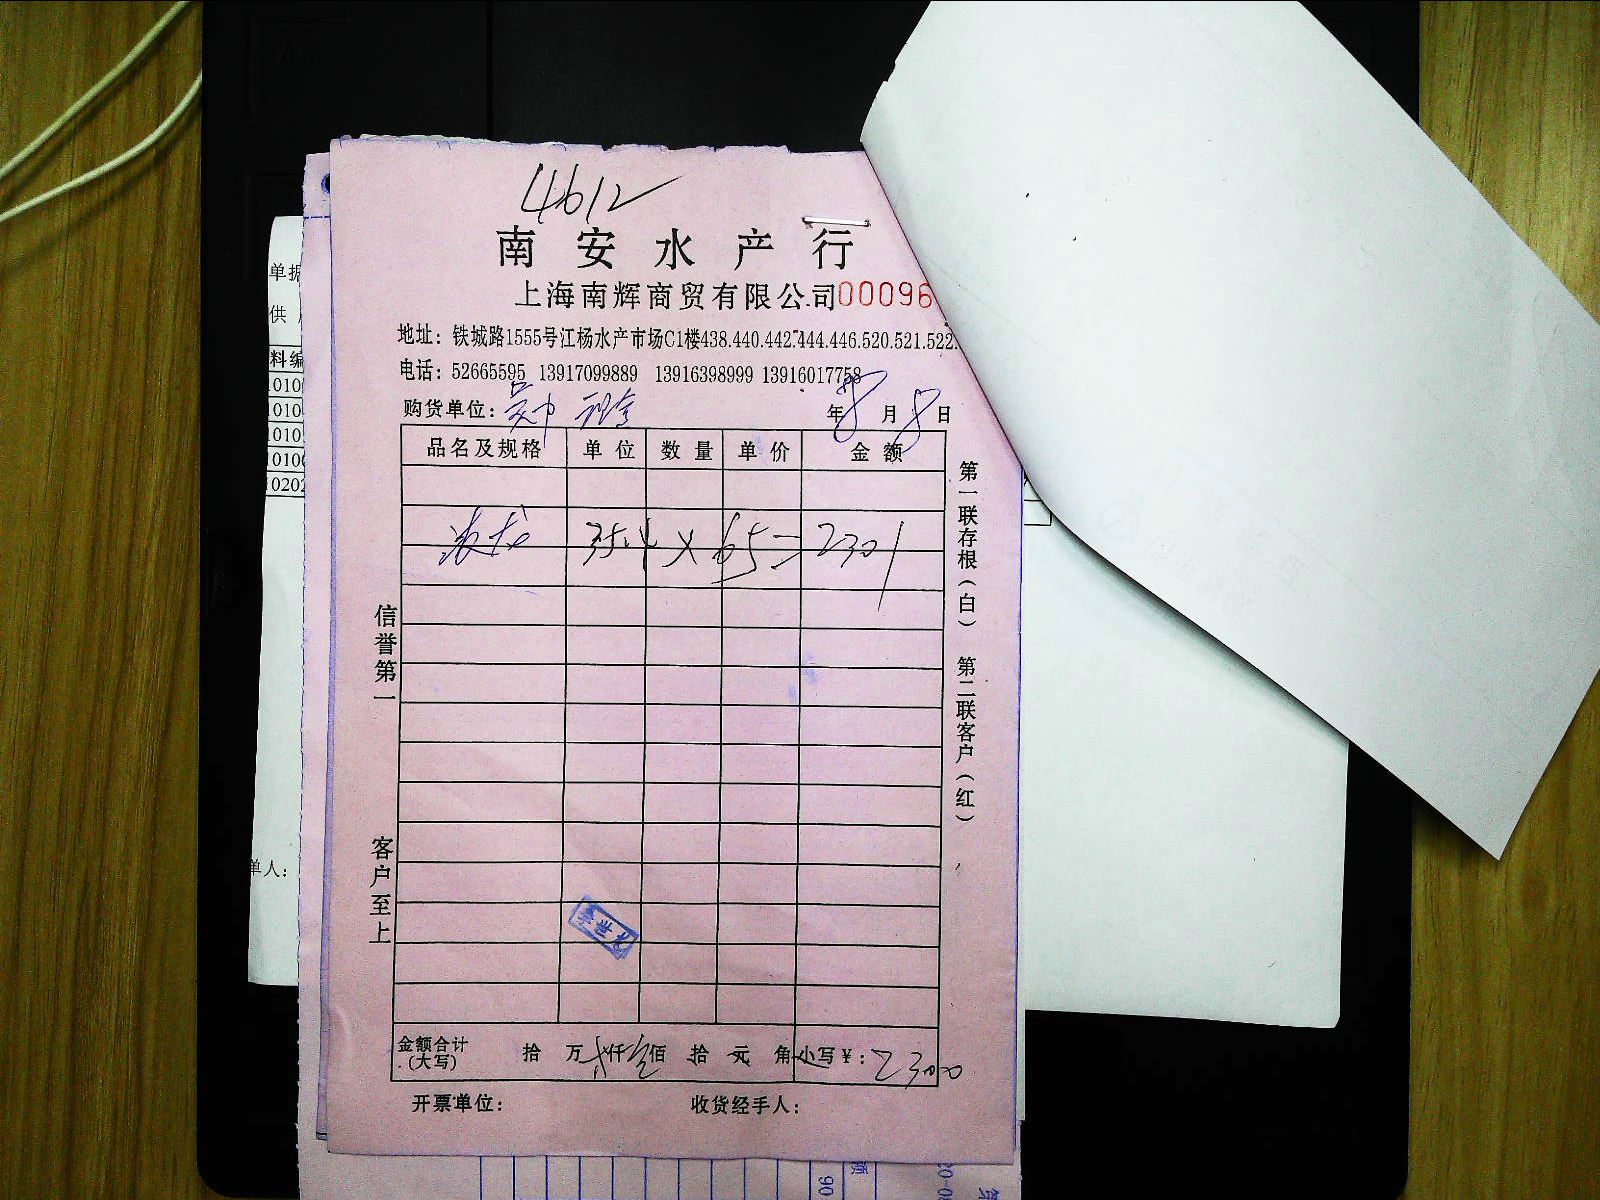 4612
南安水产行
上海南辉商贸有限公司 00096
地址：铁城路1555号江杨水产市场C1楼438.440.442.444.446.520.521.522.
电话：52665595 13917099889 13916398999 13916017758
购货单位：
年8月8日
品名及规格 单位 数量 单价 金额
35.4 × 65 = 2301
信誉第一
客户至上
第一联存根（白） 第二联客户（红）
金额合计（大写） 拾 万 仟 佰 拾 元 角 小写￥：2300
开票单位： 收货经手人：
单据
供
料编
1010
1010
1010
1010
10202
单人：